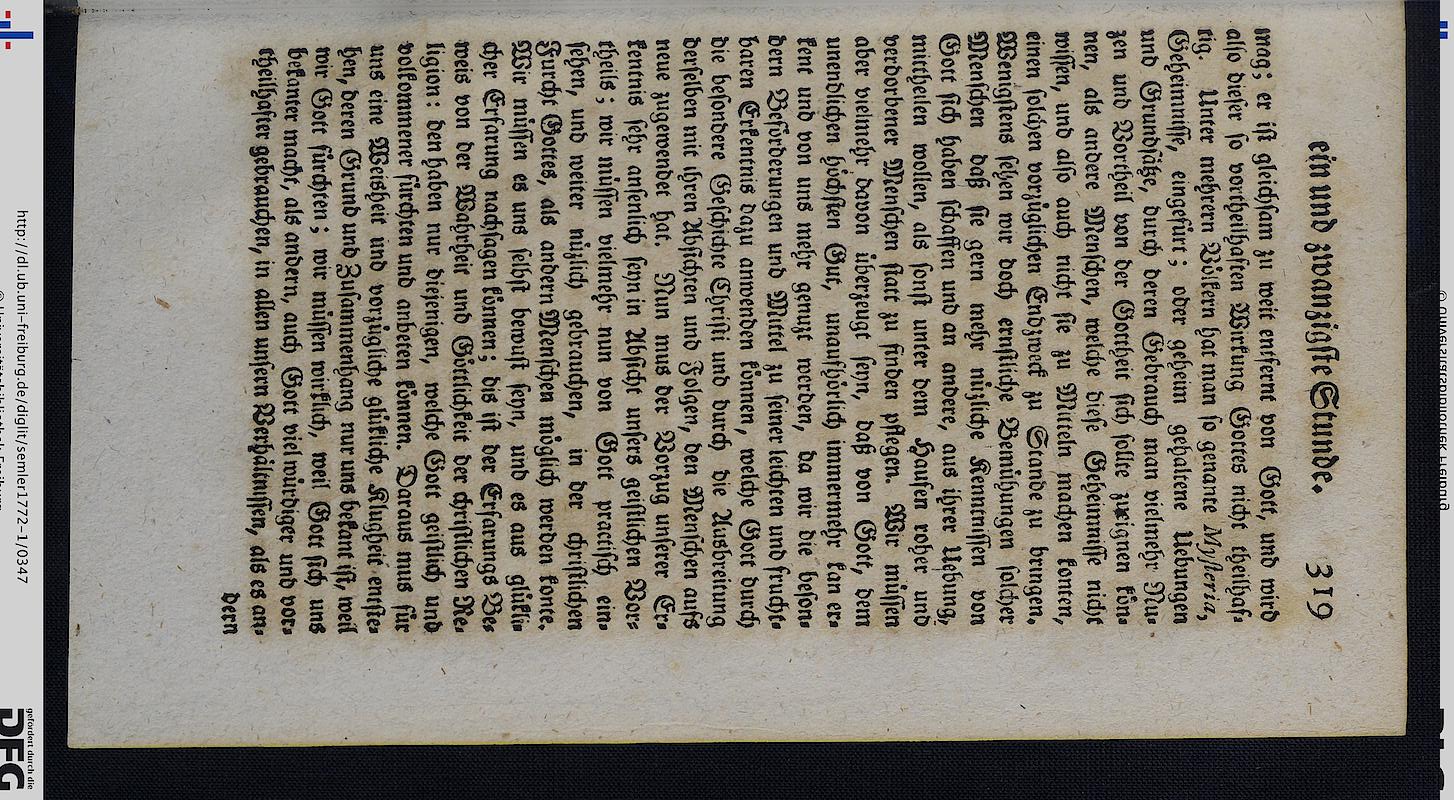 ein und zwanzigſte Stunde. 319
mag; er iſt gleichſam zu weit entfernt von Gott, und wird
alſo dieſer ſo vortheilhaften Wirkung Gottes nicht theilhaf-
tig. Unter mehrern Völkern hat man ſo genante Myſteria,
Geheimniſſe, eingefürt; oder geheim gehaltene Uebungen
und Grundſätze, durch deren Gebrauch man vielmehr Nu-
zen und Vortheil von der Gottheit ſich ſolte zueignen kön-
nen, als andere Menſchen, welche dieſe Geheimniſſe nicht
wiſſen, und alſo auch nicht ſie zu Mitteln machen konten,
einen ſolchen vorzüglichen Endzweck zu Stande zu bringen.
Wenigſtens ſehen wir doch ernſtliche Bemühungen ſolcher
Menſchen daß ſie gern mehr nüzliche Kenntniſſen von
Gott ſich haben ſchaffen und an andere, aus ihrer Uebung,
mittheilen wollen, als ſonſt unter dem Haufen roher und
verdorbener Menſchen ſtatt zu finden pflegen. Wir müſſen
aber vielmehr davon überzeugt ſeyn, daß von Gott, dem
unendlichen höchſten Gut, unaufhörlich immermehr kan er-
kent und von uns mehr genuzt werden, da wir die beſon-
dern Beförderungen und Mittel zu ſeiner leichten und frucht-
baren Erkentnis dazu anwenden können, welche Gott durch
die beſondere Geſchichte Chriſti und durch die Ausbreitung
derſelben mit ihren Abſichten und Folgen, den Menſchen aufs
neue zugewendet hat. Nun mus der Vorzug unſerer Er-
kentnis ſehr anſenlich ſeyn in Abſicht unſers geiſtlichen Vor-
theils; wir müſſen vielmehr nun von Gott practiſch ein-
ſehen, und weiter nüzlich gebrauchen, in der chriſtlichen
Furcht Gottes, als andern Menſchen möglich werden konte.
Wir müſſen es uns ſelbſt bewuſt ſeyn, und es aus glükli-
cher Erfarung nachſagen können; dis iſt der Erfarungs Be-
weis von der Wahrheit und Göttlichkeit der chriſtlichen Re-
ligion: den haben nur diejenigen, welche Gott geiſtlich und
volkommener fürchten und anbeten können. Daraus mus für
uns eine Weisheit und vorzügliche glükliche Klugheit entſte-
hen, deren Grund und Zuſammenhang nur uns bekant iſt, weil
wir Gott fürchten; wir müſſen wirklich, weil Gott ſich uns
bekanter macht, als andern, auch Gott viel würdiger und vor-
theilhafter gebrauchen, in allen unſern Verhältniſſen, als es an-
dern
http://dl.ub.uni-freiburg.de/diglit/semler1772-1/0347
gefördert durch die
DFG